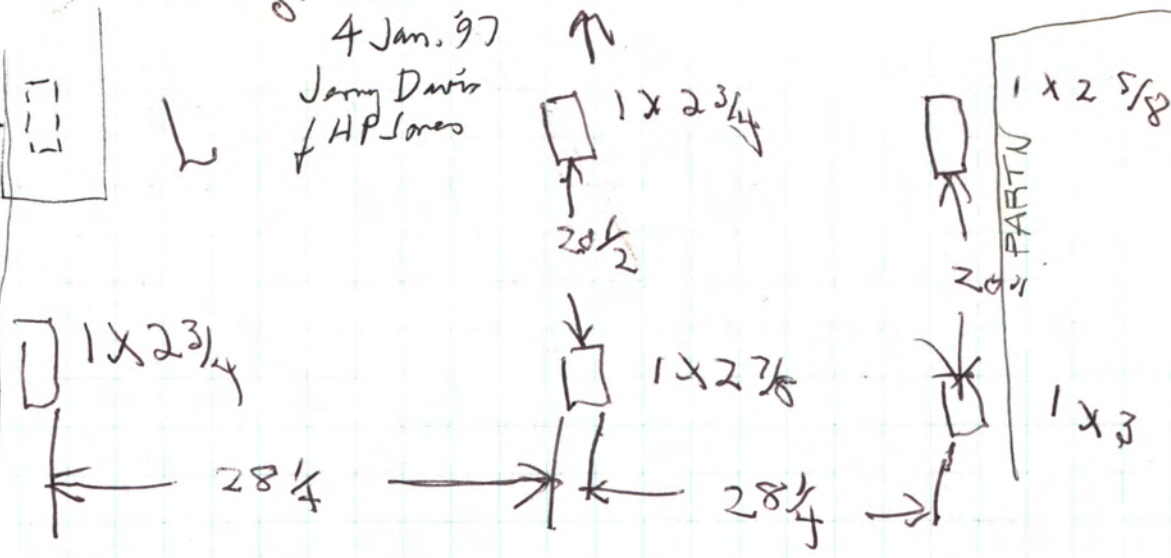 4 Jan. '97
Jerry Davis
HP Jones
1 x 2 3/4
1 x 2 5/8
PARTN
20 1/2
1 x 2 3/4
1 x 2 7/8
1 x 3
28 1/4
28 1/4